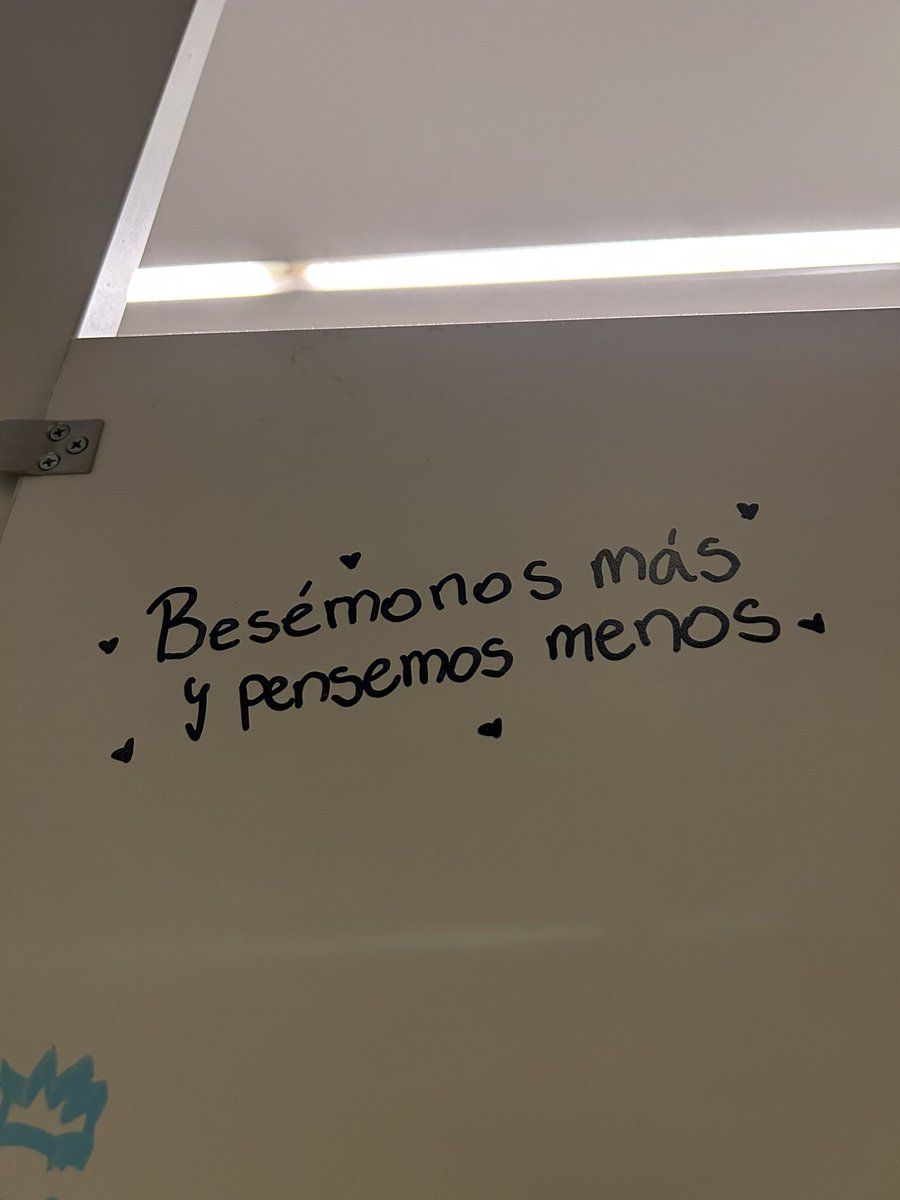 Besémonos más
y pensemos menos